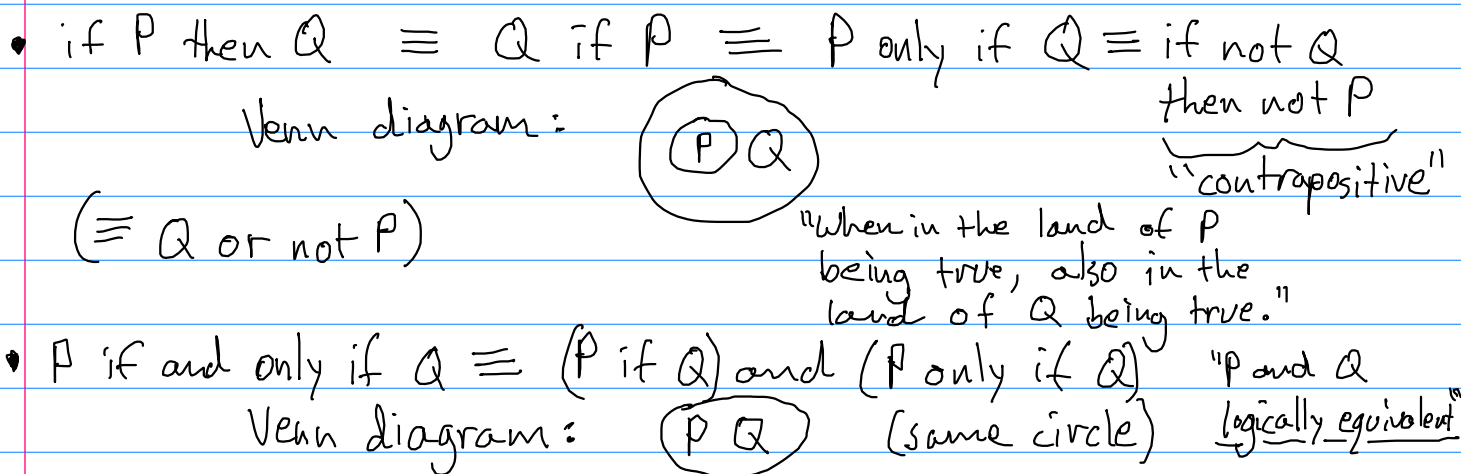 • if P then Q ≡ Q if P ≡ P only if Q ≡ if not Q
then not P
Venn diagram:
P Q
"contrapositive"
(≡ Q or not P)
"When in the land of P
being true, also in the
land of Q being true."
• P if and only if Q ≡ (P if Q) and (P only if Q) "P and Q
logically equivalent"
Venn diagram: P Q (same circle)